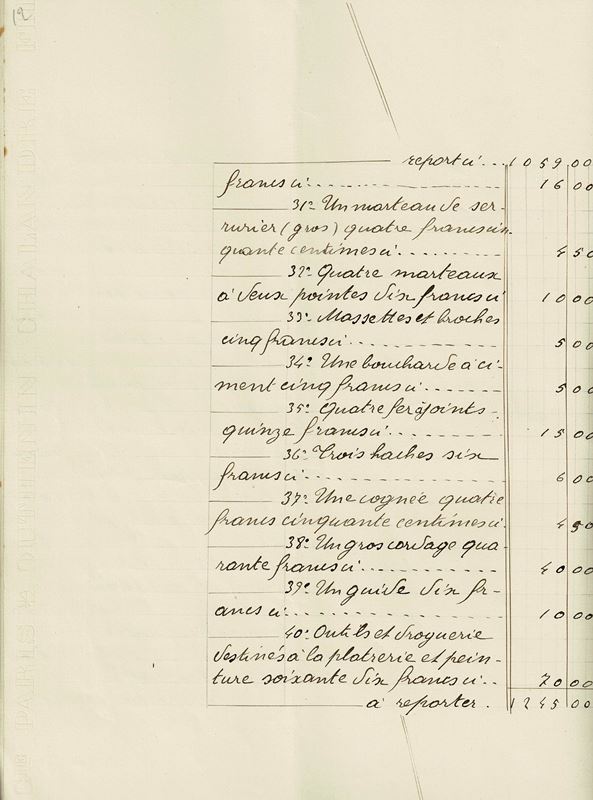 12
report ci... 1059 00
francs ci........... 16 00
31° Un marteau de ser-
rurier (gros) quatre francs cin-
quante centimes ci.......... 4 50
32° Quatre marteaux
à deux pointes dix francs ci 10 00
33° Massettes et broches
cinq francs ci........... 5 00
34° Une boucharde à ci-
ment cinq francs ci....... 5 00
35° Quatre fer à joints
quinze francs ci......... 15 00
36° Trois haches six
francs ci........... 6 00
37° Une cognée quatre
francs cinquante centimes ci. 4 50
38° Un gros cordage qua-
rante francs ci........... 40 00
39° Un guide dix fr-
ancs ci............ 10 00
40° Outils et droguerie
destinés à la platrerie et pein-
ture soixante dix francs ci.. 70 00
à reporter. 1245 00